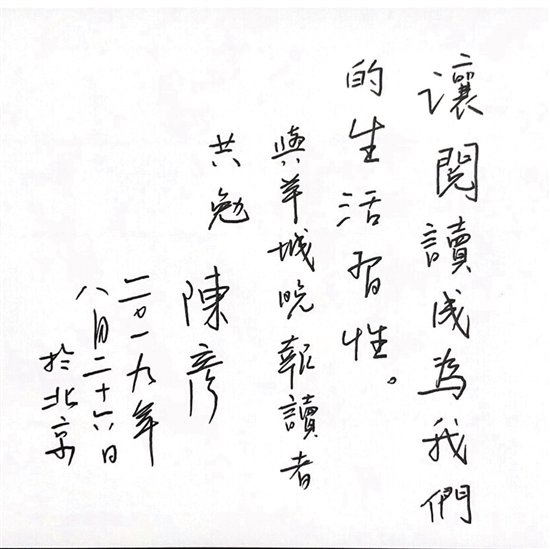 讓閱讀成為我們
的生活習性。
與羊城晚報讀者
共勉
陳彥
二〇一九年
八月二十六日
於北京